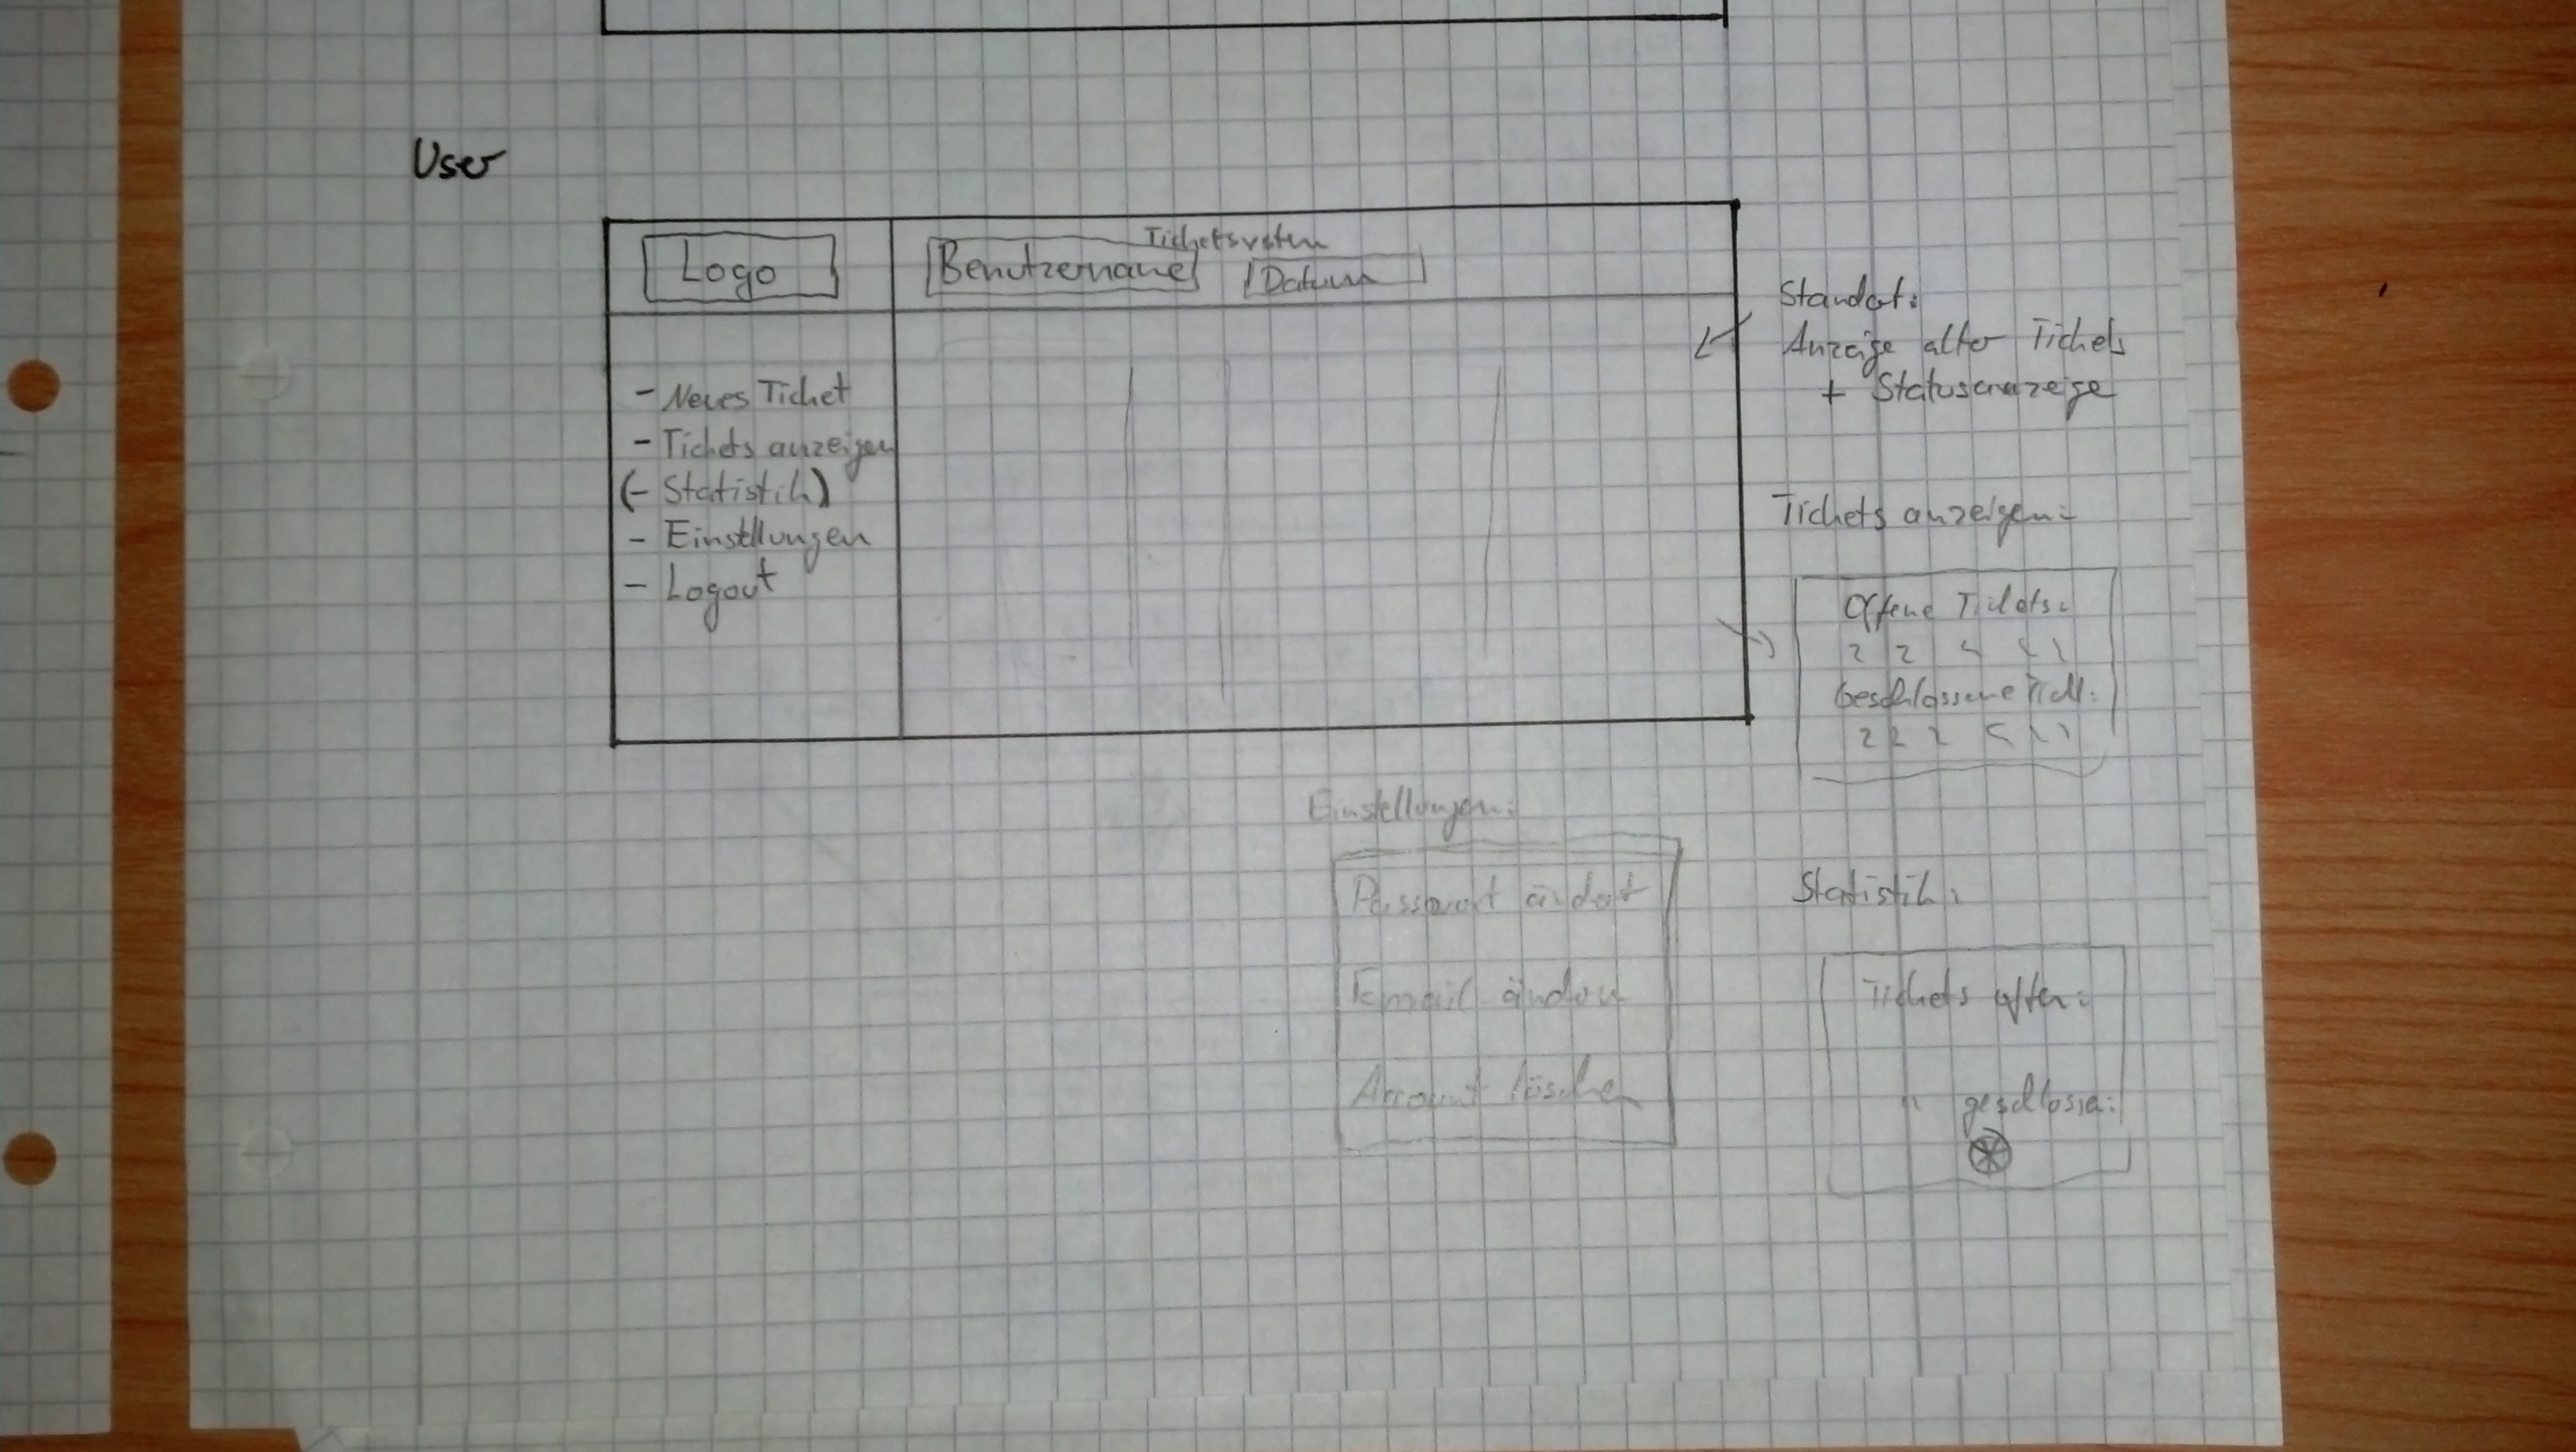 User
Ticketsystem
Logo
Benutzername
Datum
- Neues Ticket
- Tickets anzeigen
(- Statistik)
- Einstllungen
- Logout
Standart:
Anzeige alter Tickets
+ Statusanzeige
Tickets anzeigen:
Offene Tickets:
Geschlossene Tick.:
Einstellungen:
Passwort ändern
Email ändern
Account löschen
Statistik:
Tickets offen:
" geschlossen: